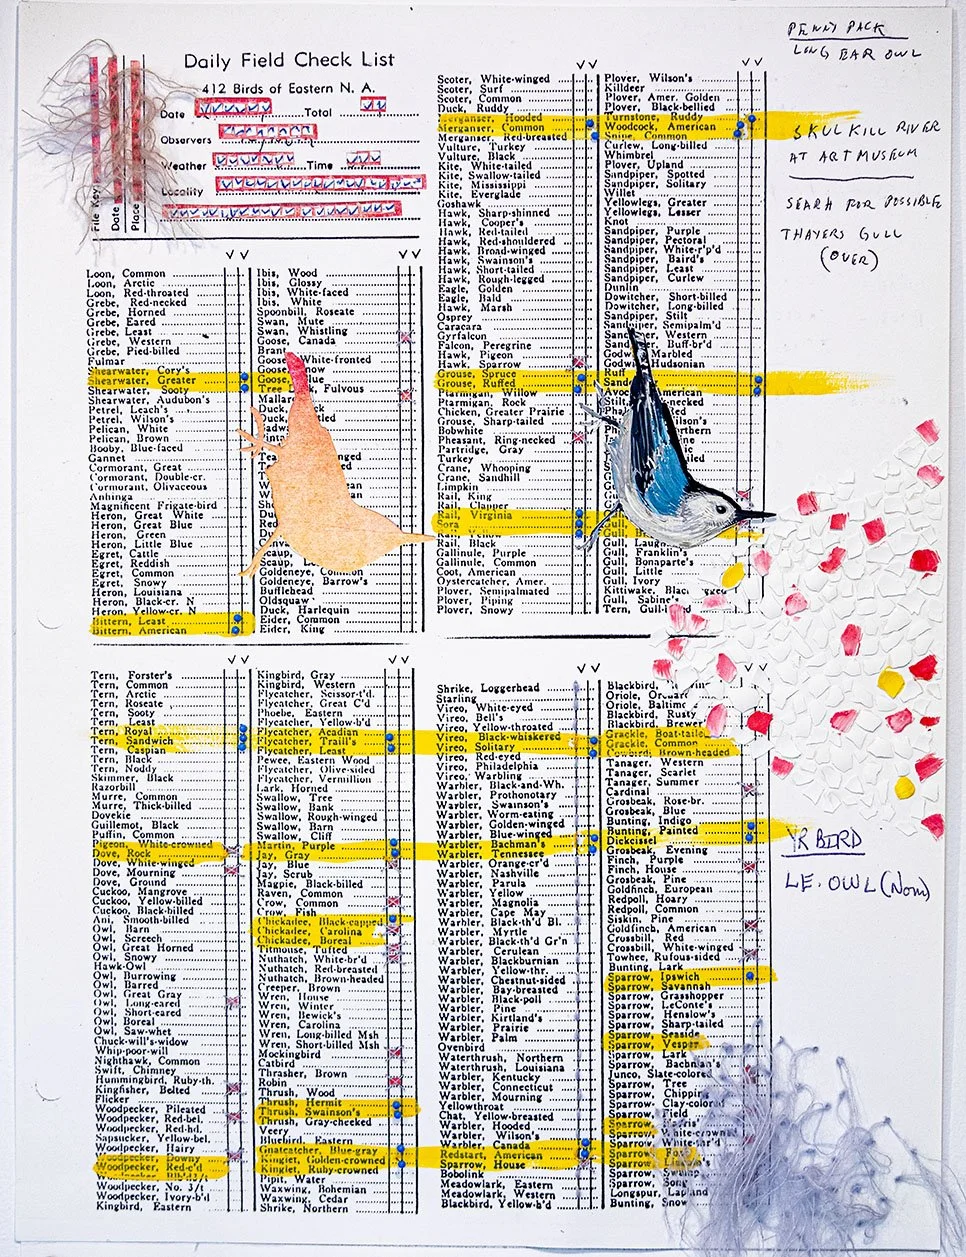 PENNY PACK
LONG EAR OWL
SKULKILL RIVER
AT ART MUSEUM
SEARH FOR POSSIBLE
THAYERS GULL
(OVER)
Daily Field Check List
412 Birds of Eastern N. A.
Date Total
Observers
Weather Time
Locality
File Key
Date
Place
Loon, Common
Loon, Arctic
Loon, Red-throated
Grebe, Red-necked
Grebe, Horned
Grebe, Eared
Grebe, Least
Grebe, Western
Grebe, Pied-billed
Fulmar
Shearwater, Cory's
Shearwater, Greater
Shearwater, Sooty
Shearwater, Audubon's
Petrel, Leach's
Petrel, Wilson's
Pelican, White
Pelican, Brown
Booby, Blue-faced
Gannet
Cormorant, Great
Cormorant, Double-cr.
Cormorant, Olivaceous
Anhinga
Magnificent Frigate-bird
Heron, Great White
Heron, Great Blue
Heron, Green
Heron, Little Blue
Egret, Cattle
Egret, Reddish
Egret, Common
Egret, Snowy
Heron, Louisiana
Heron, Black-cr. N
Heron, Yellow-cr. N
Bittern, Least
Bittern, American
Ibis, Wood
Ibis, Glossy
Ibis, White-faced
Ibis, White
Spoonbill, Roseate
Swan, Mute
Swan, Whistling
Goose, Canada
Brant
Goose, White-fronted
Goose,
Goose,
Tree Fulvous
Mallard
Goldeneye, Common
Goldeneye, Barrow's
Bufflehead
Oldsquaw
Duck, Harlequin
Eider, Common
Eider, King
Scoter, White-winged
Scoter, Surf
Scoter, Common
Duck, Ruddy
Merganser, Hooded
Merganser, Common
Merganser, Red-breasted
Vulture, Turkey
Vulture, Black
Kite, White-tailed
Kite, Swallow-tailed
Kite, Mississippi
Kite, Everglade
Goshawk
Hawk, Sharp-shinned
Hawk, Cooper's
Hawk, Red-tailed
Hawk, Red-shouldered
Hawk, Broad-winged
Hawk, Swainson's
Hawk, Short-tailed
Hawk, Rough-legged
Eagle, Golden
Eagle, Bald
Hawk, Marsh
Osprey
Caracara
Gyrfalcon
Falcon, Peregrine
Hawk, Pigeon
Hawk, Sparrow
Grouse, Spruce
Grouse, Ruffed
Ptarmigan, Willow
Ptarmigan, Rock
Chicken, Greater Prairie
Grouse, Sharp-tailed
Bobwhite
Pheasant, Ring-necked
Partridge, Gray
Turkey
Crane, Whooping
Crane, Sandhill
Limpkin
Rail, King
Rail, Clapper
Rail, Virginia
Sora
Rail, Yellow
Rail, Black
Gallinule, Purple
Gallinule, Common
Coot, American
Oystercatcher, Amer.
Plover, Semipalmated
Plover, Piping
Plover, Snowy
Plover, Wilson's
Killdeer
Plover, Amer. Golden
Plover, Black-bellied
Turnstone, Ruddy
Woodcock, American
Snipe, Common
Curlew, Long-billed
Whimbrel
Plover, Upland
Sandpiper, Spotted
Sandpiper, Solitary
Willet
Yellowlegs, Greater
Yellowlegs, Lesser
Knot
Sandpiper, Purple
Sandpiper, Pectoral
Sandpiper, White-r'p'd
Sandpiper, Baird's
Sandpiper, Least
Sandpiper, Curlew
Dunlin
Dowitcher, Short-billed
Dowitcher, Long-billed
Sandpiper, Stilt
Sandpiper, Semipalm'd
Western
Buff-br'd
Marbled
Hudsonian
Ruff
American
Gull,
Gull, Franklin's
Gull, Bonaparte's
Gull, Little
Gull, Ivory
Kittiwake,
Gull, Sabine's
Tern,
Tern, Forster's
Tern, Common
Tern, Arctic
Tern, Roseate
Tern, Sooty
Tern, Least
Tern, Royal
Tern, Sandwich
Tern, Caspian
Tern, Black
Tern, Noddy
Skimmer, Black
Razorbill
Murre, Common
Murre, Thick-billed
Dovekie
Guillemot, Black
Puffin, Common
Pigeon, White-crowned
Dove, Rock
Dove, White-winged
Dove, Mourning
Dove, Ground
Cuckoo, Mangrove
Cuckoo, Yellow-billed
Cuckoo, Black-billed
Ani, Smooth-billed
Owl, Barn
Owl, Screech
Owl, Great Horned
Owl, Snowy
Hawk-Owl
Owl, Burrowing
Owl, Barred
Owl, Great Gray
Owl, Long-eared
Owl, Short-eared
Owl, Boreal
Owl, Saw-whet
Chuck-will's-widow
Whip-poor-will
Nighthawk, Common
Swift, Chimney
Hummingbird, Ruby-th.
Kingfisher, Belted
Flicker
Woodpecker, Pileated
Woodpecker, Red-bel.
Woodpecker, Red-hd.
Sapsucker, Yellow-bel.
Woodpecker, Hairy
Woodpecker, Downy
Woodpecker, Red-c'd
Woodpecker,
Woodpecker, No. 3/t
Woodpecker, Ivory-b'd
Kingbird, Eastern
Kingbird, Gray
Kingbird, Western
Flycatcher, Scissor-t'd.
Flycatcher, Great C'd
Phoebe, Eastern
Flycatcher, Yellow-b'd
Flycatcher, Acadian
Flycatcher, Traill's
Flycatcher, Least
Pewee, Eastern Wood
Flycatcher, Olive-sided
Flycatcher, Vermillion
Lark, Horned
Swallow, Tree
Swallow, Bank
Swallow, Rough-winged
Swallow, Barn
Swallow, Cliff
Martin, Purple
Jay, Gray
Jay, Blue
Jay, Scrub
Magpie, Black-billed
Raven, Common
Crow, Common
Crow, Fish
Chickadee, Black-capped
Chickadee, Carolina
Chickadee, Boreal
Titmouse, Tufted
Nuthatch, White-br'd
Nuthatch, Red-breasted
Nuthatch, Brown-headed
Creeper, Brown
Wren, House
Wren, Winter
Wren, Bewick's
Wren, Carolina
Wren, Long-billed Msh
Wren, Short-billed Msh
Mockingbird
Catbird
Thrasher, Brown
Robin
Thrush, Wood
Thrush, Hermit
Thrush, Swainson's
Thrush, Gray-cheeked
Veery
Bluebird, Eastern
Gnatcatcher, Blue-gray
Kinglet, Golden-crowned
Kinglet, Ruby-crowned
Pipit, Water
Waxwing, Bohemian
Waxwing, Cedar
Shrike, Northern
Shrike, Loggerhead
Starling
Vireo, White-eyed
Vireo, Bell's
Vireo, Yellow-throated
Vireo, Black-whiskered
Vireo, Solitary
Vireo, Red-eyed
Vireo, Philadelphia
Vireo, Warbling
Warbler, Black-and-Wh.
Warbler, Prothonotary
Warbler, Swainson's
Warbler, Worm-eating
Warbler, Golden-winged
Warbler, Blue-winged
Warbler, Bachman's
Warbler, Tennessee
Warbler, Orange-cr'd
Warbler, Nashville
Warbler, Parula
Warbler, Yellow
Warbler, Magnolia
Warbler, Cape May
Warbler, Black-th'd Bl.
Warbler, Myrtle
Warbler, Black-th'd Gr'n
Warbler, Cerulean
Warbler, Blackburnian
Warbler, Yellow-thr.
Warbler, Chestnut-sided
Warbler, Bay-breasted
Warbler, Black-poll
Warbler, Pine
Warbler, Kirtland's
Warbler, Prairie
Warbler, Palm
Ovenbird
Waterthrush, Northern
Waterthrush, Louisiana
Warbler, Kentucky
Warbler, Connecticut
Warbler, Mourning
Yellowthroat
Chat, Yellow-breasted
Warbler, Hooded
Warbler, Wilson's
Warbler, Canada
Redstart, American
Sparrow, House
Bobolink
Meadowlark, Eastern
Meadowlark, Western
Blackbird, Yellow-h'd
Blackbird,
Oriole, Orchard
Oriole, Baltimore
Blackbird, Rusty
Blackbird, Brewer
Grackle, Boat-tailed
Grackle, Common
Cowbird, Brown-headed
Tanager, Western
Tanager, Scarlet
Tanager, Summer
Cardinal
Grosbeak, Rose-br.
Grosbeak, Blue
Bunting, Indigo
Bunting, Painted
Dickcissel
Grosbeak, Evening
Finch, Purple
Finch, House
Grosbeak, Pine
Goldfinch, European
Redpoll, Hoary
Redpoll, Common
Siskin, Pine
Goldfinch, American
Crossbill, Red
Crossbill, White-winged
Towhee, Rufous-sided
Bunting, Lark
Sparrow, Ipswich
Sparrow, Savannah
Sparrow, Grasshopper
Sparrow, LeConte's
Sparrow, Henslow's
Sparrow, Sharp-tailed
Sparrow, Seaside
Sparrow, Vesper
Sparrow, Lark
Sparrow, Bachman's
Junco, Slate-colored
Sparrow, Tree
Sparrow, Chipping
Sparrow, Clay-colored
Sparrow, Field
Sparrow,
Sparrow, White-crowned
Sparrow,
Sparrow, Fox
Sparrow,
Sparrow, Swamp
Sparrow, Song
Longspur, Lapland
Bunting, Snow
YR BIRD
L.E. OWL (Nom)